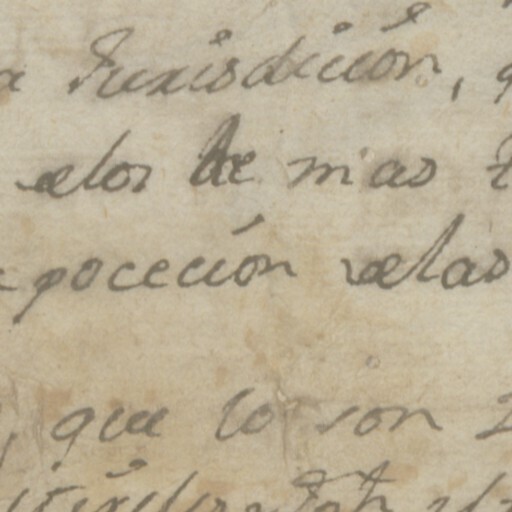 a Jurisdición,
delos de mas
poceción delas
que lo son